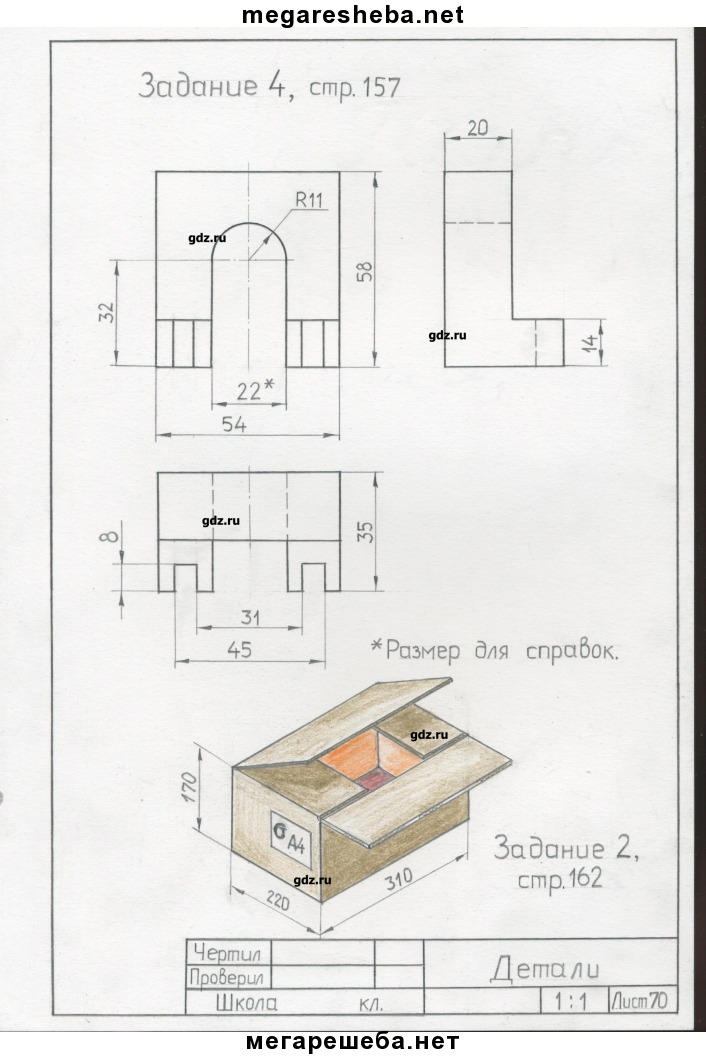 megaresheba.net
Задание 4, стр. 157
20
R11
gdz.ru
58
32
gdz.ru
14
22*
54
gdz.ru
8
35
31
45
*Размер для справок.
gdz.ru
170
А4
gdz.ru
220
310
Задание 2,
стр. 162
Чертил
Проверил
Детали
Школа кл.
1:1
Лист 70
мегарешеба.нет